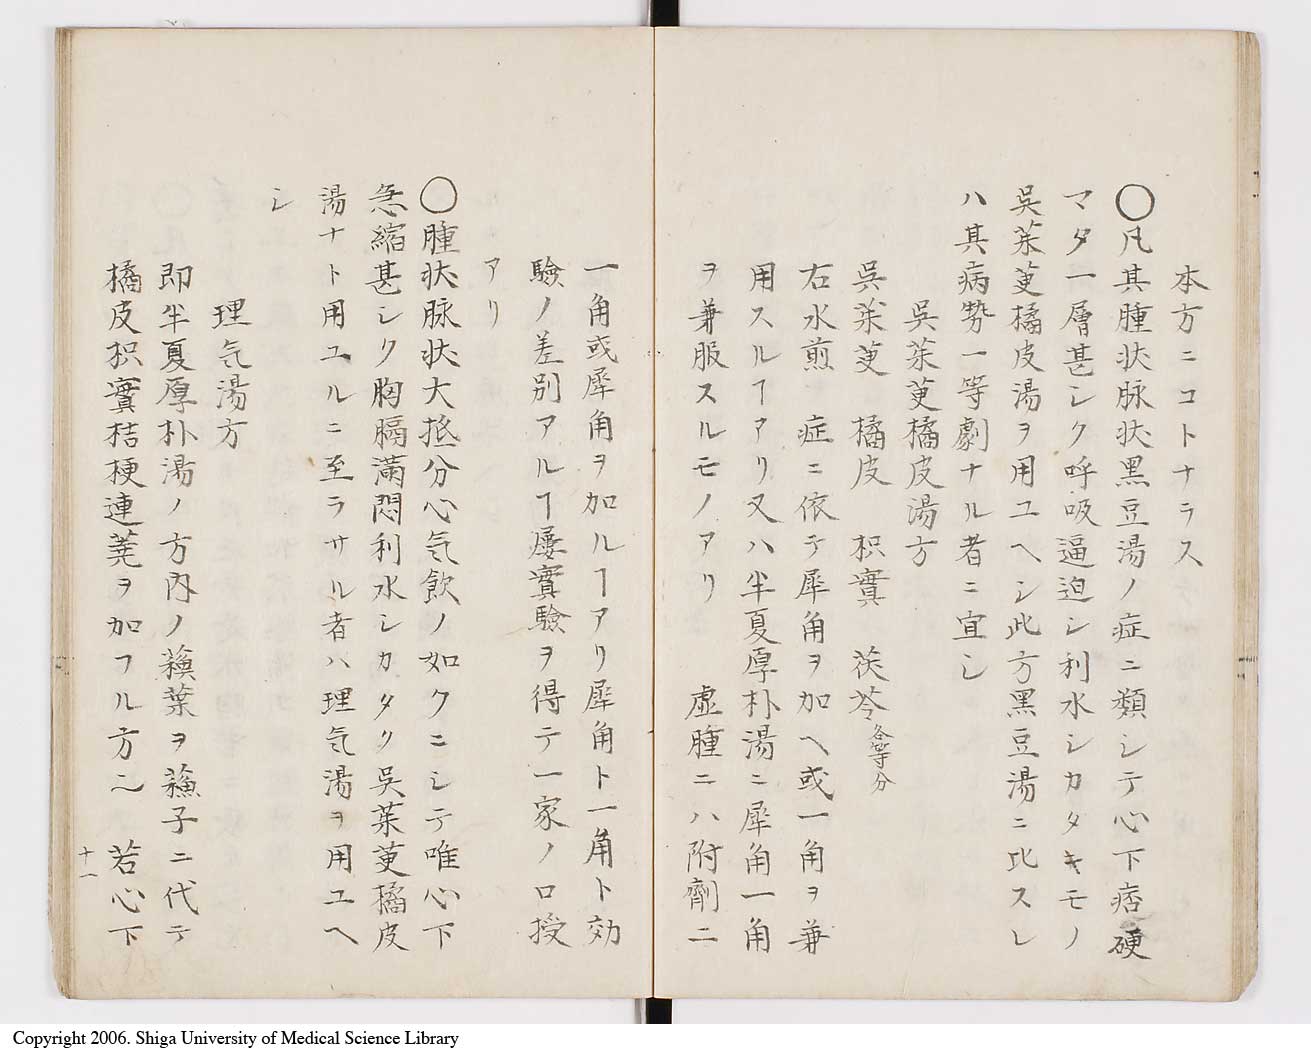 本方ニコトナラス
〇凡其腫状脉状黒豆湯ノ症ニ類シテ心下痞硬
マタ一層甚シク呼吸逼迫シ利水シカタキモノ
呉茱萸橘皮湯ヲ用ユヘシ此方黒豆湯ニ比スレ
ハ其病勢一等劇ナル者ニ宜シ
呉茱萸橘皮湯方
呉茱萸 橘皮 枳實 茯苓各等分
右水煎シ症ニ依テ犀角ヲ加ヘ或一角ヲ兼
用スルヿアリ又ハ半夏厚朴湯ニ犀角一角
ヲ兼服スルモノアリ 虚腫ニハ附劑ニ
一角或犀角ヲ加ルヿアリ犀角ト一角ト効
驗ノ差別アルヿ屡實驗ヲ得テ一家ノ口授
アリ
〇腫状脉状大抵分心気飲ノ如クニシテ唯心下
急縮甚シク胸膈滿悶利水シカタク呉茱萸橘皮
湯ナト用ユルニ至ラサル者ハ理気湯ヲ用ユヘ
シ
理気湯方
即半夏厚朴湯ノ方内ノ蘓葉ヲ蘓子ニ代テ
橘皮枳實桔梗連莞ヲ加フル方也 若心下
十一
Copyright 2006. Shiga University of Medical Science Library